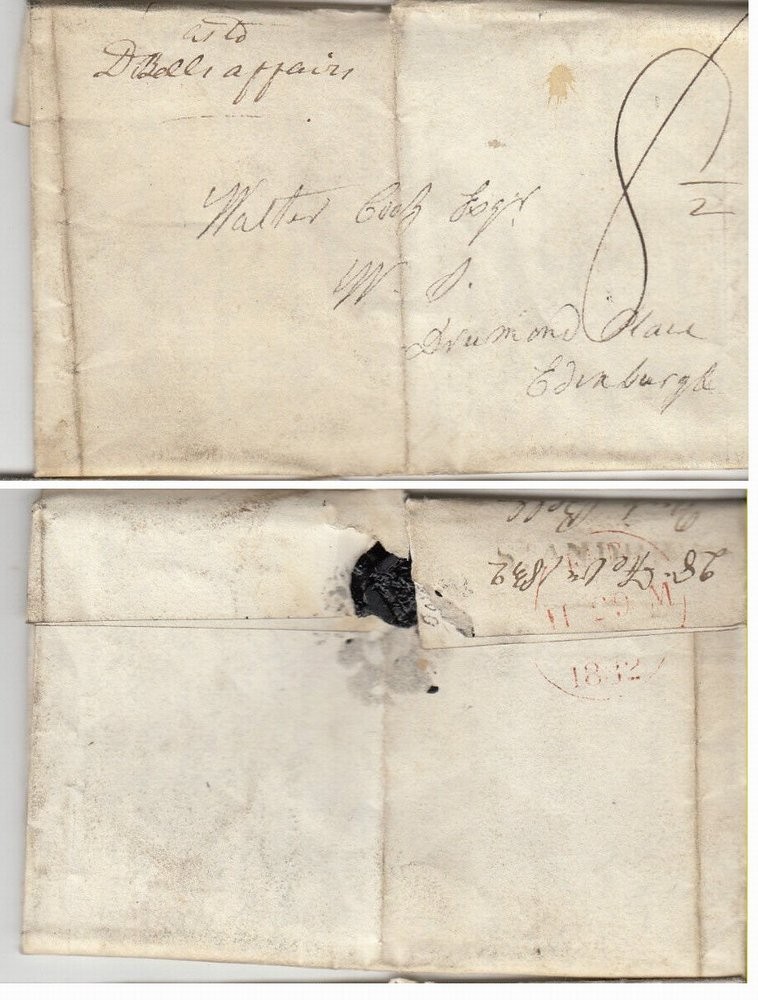 as to
D Bells affairs
8 1/2
Walter Cook Esqr
W. S.
Drumond Place
Edinburgh
Bell
28 Feby 1832
1832